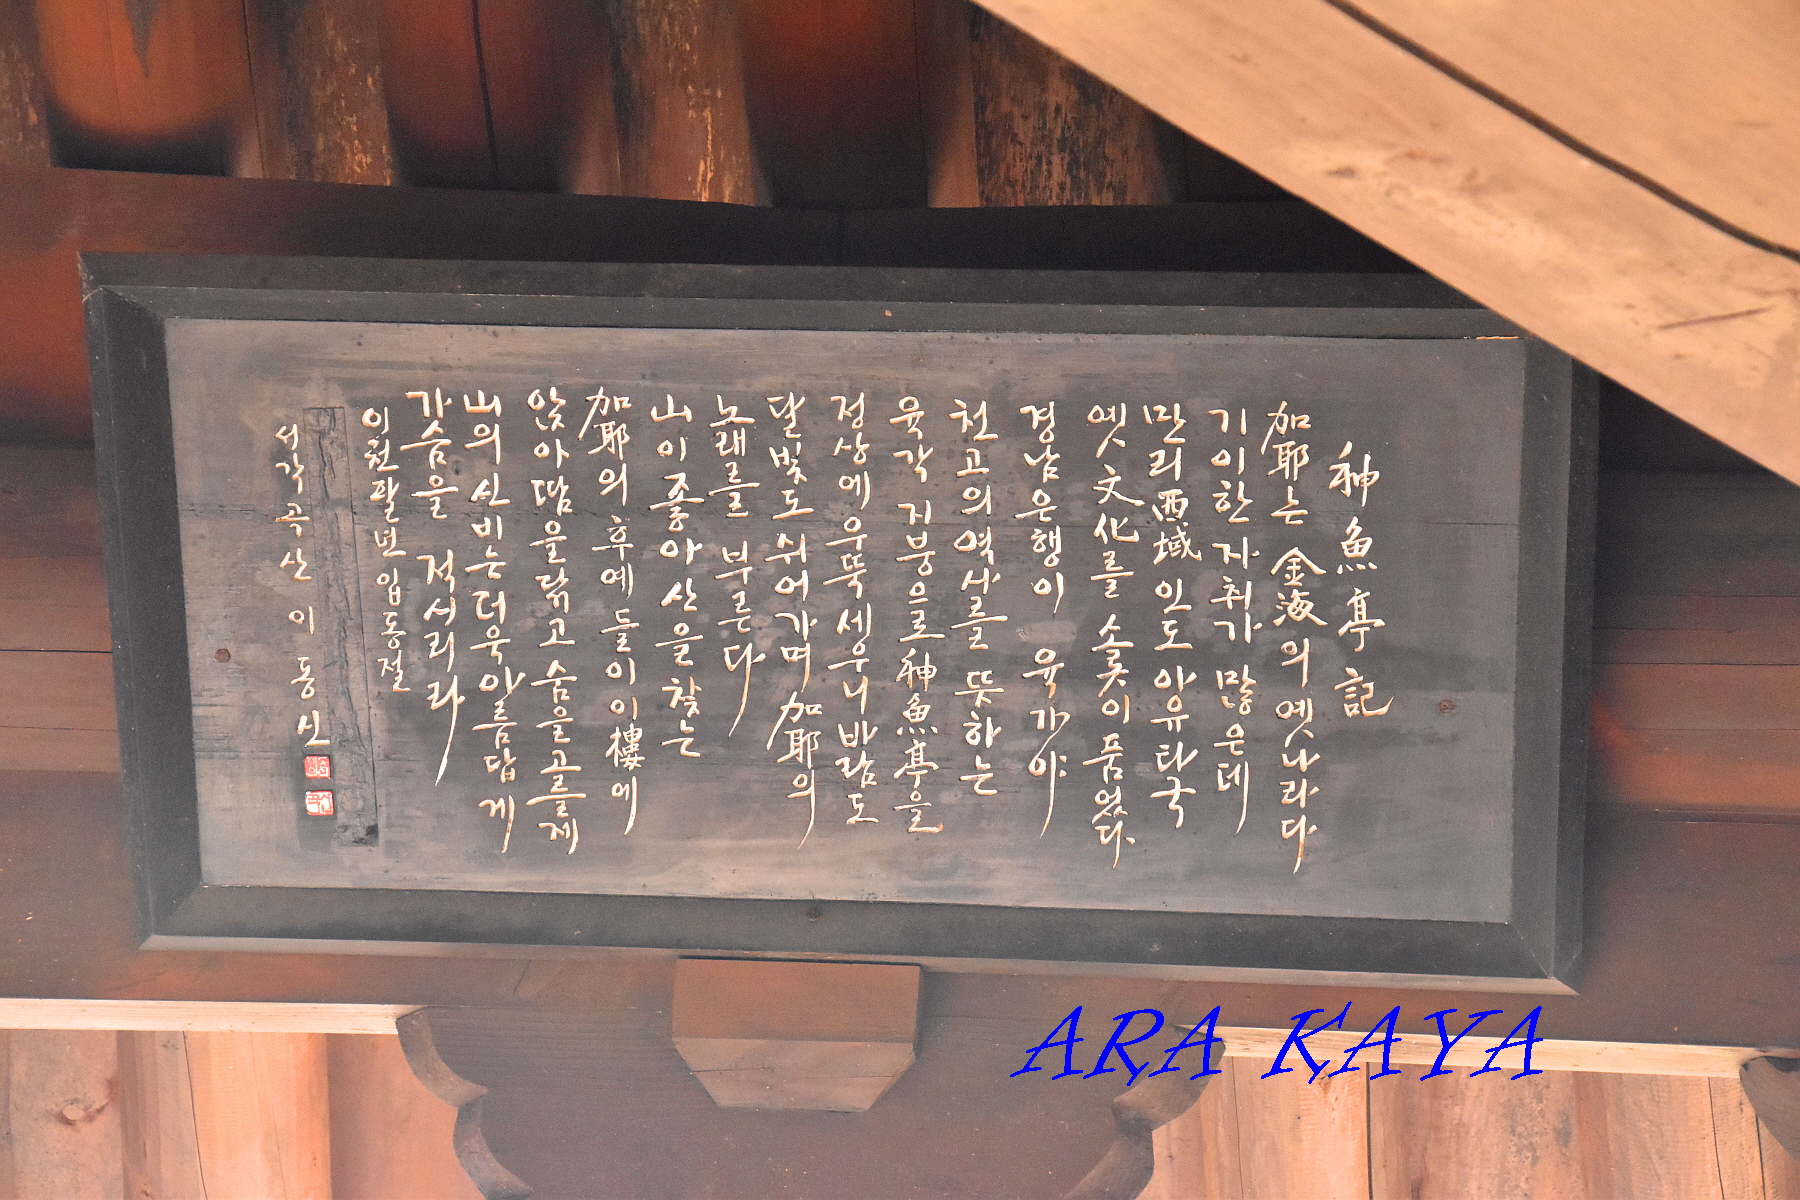 神魚亭記
加耶는 金海의 옛나라다
기이한 자취가 많은데
만리西域 인도 아유타국
옛 文化를 솔곳이 품었다.
경남은행이 육가야
천고의 역사를 뜻하는
육각 지붕으로 神魚亭을
정상에 우뚝 세우니 바람도
달빛도 쉬어가며 加耶의
노래를 부른다
山이 좋아 산을 찾는
加耶의 후예들이 이 樓에
앉아 땀을 닦고 숨을 고를제
山의 신비는 더욱 아름답게
가슴을 적시리라
이천팔년 입동절
서각 곡산 이동신
ARA KAYA